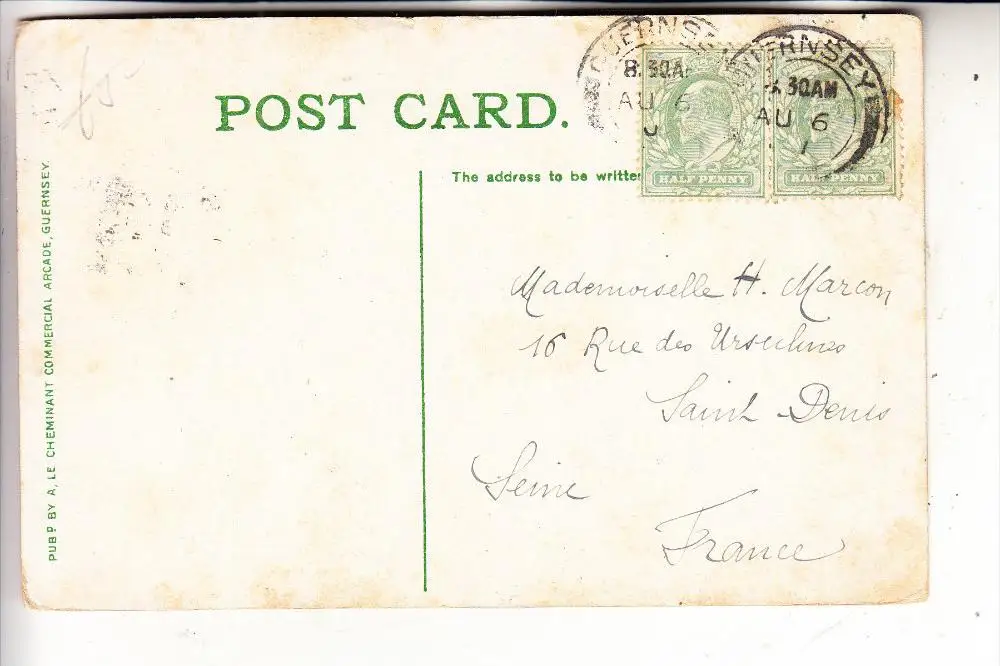 POST CARD.
The address to be written
PUBD BY A, LE CHEMINANT COMMERCIAL ARCADE, GUERNSEY.
GUERNSEY
8.30AM
AU 6
GUERNSEY
30AM
AU 6
1
HALF PENNY
HALF PENNY
Mademoiselle H. Marcon
16 Rue des Ursulines
Saint-Denis
Seine
France